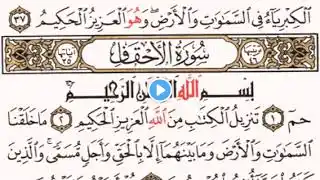 الْكِبْرِيَاءُ فِي السَّمَٰوَٰتِ وَالْأَرْضِ وَهُوَ الْعَزِيزُ الْحَكِيمُ ٣٧
سُورَةُ الْأَحْقَافِ
بِسْمِ اللَّهِ الرَّحْمَٰنِ الرَّحِيمِ
حم ١ تَنزِيلُ الْكِتَٰبِ مِنَ اللَّهِ الْعَزِيزِ الْحَكِيمِ ٢ مَا خَلَقْنَا
السَّمَٰوَٰتِ وَالْأَرْضَ وَمَا بَيْنَهُمَا إِلَّا بِالْحَقِّ وَأَجَلٍ مُّسَمًّى وَالَّذِينَ